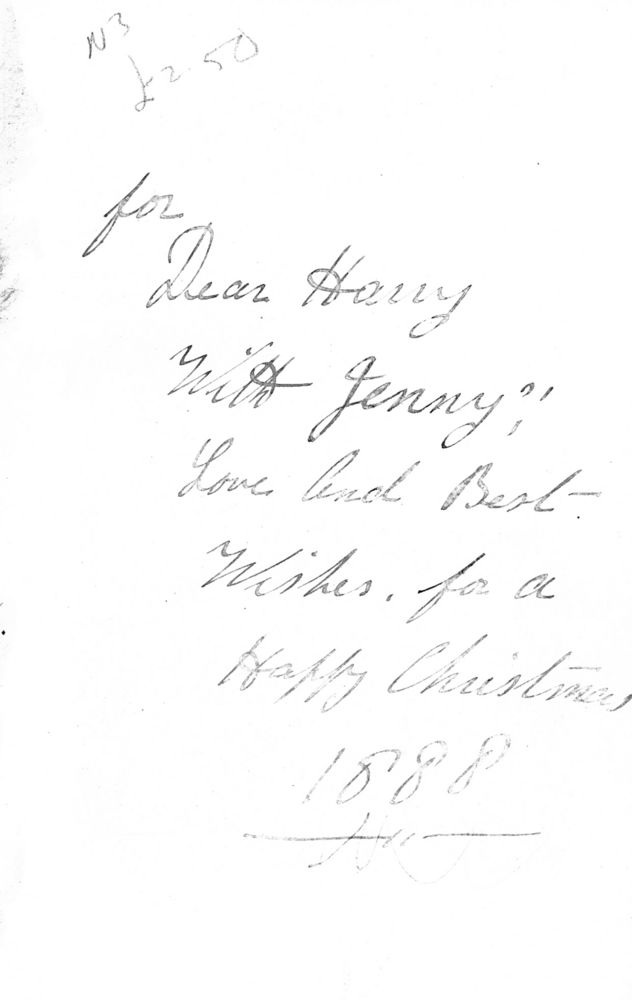 N3
£2.50
for
Dear Harry
With Jenny's
Love And Best
Wishes. for a
Happy Christmas
1888